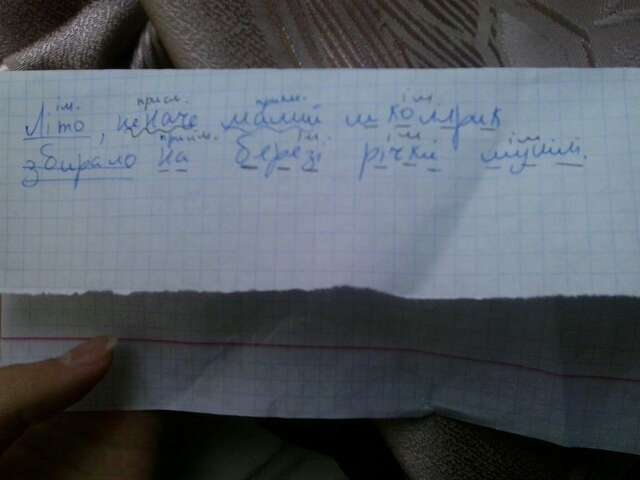 ім. присл. прикм. ім.
Літо, неначе малий школярик
прийм. ім. ім. ім.
збирало на березі річки мушлі.